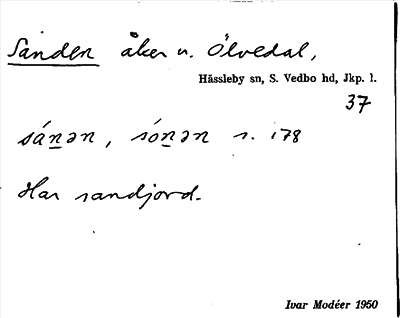 Sanden åker u. Ölvedal,
Hässleby sn, S. Vedbo hd, Jkp. l.
37
sánən, sónən s. 178
Har sandjord.
Ivar Modéer 1950